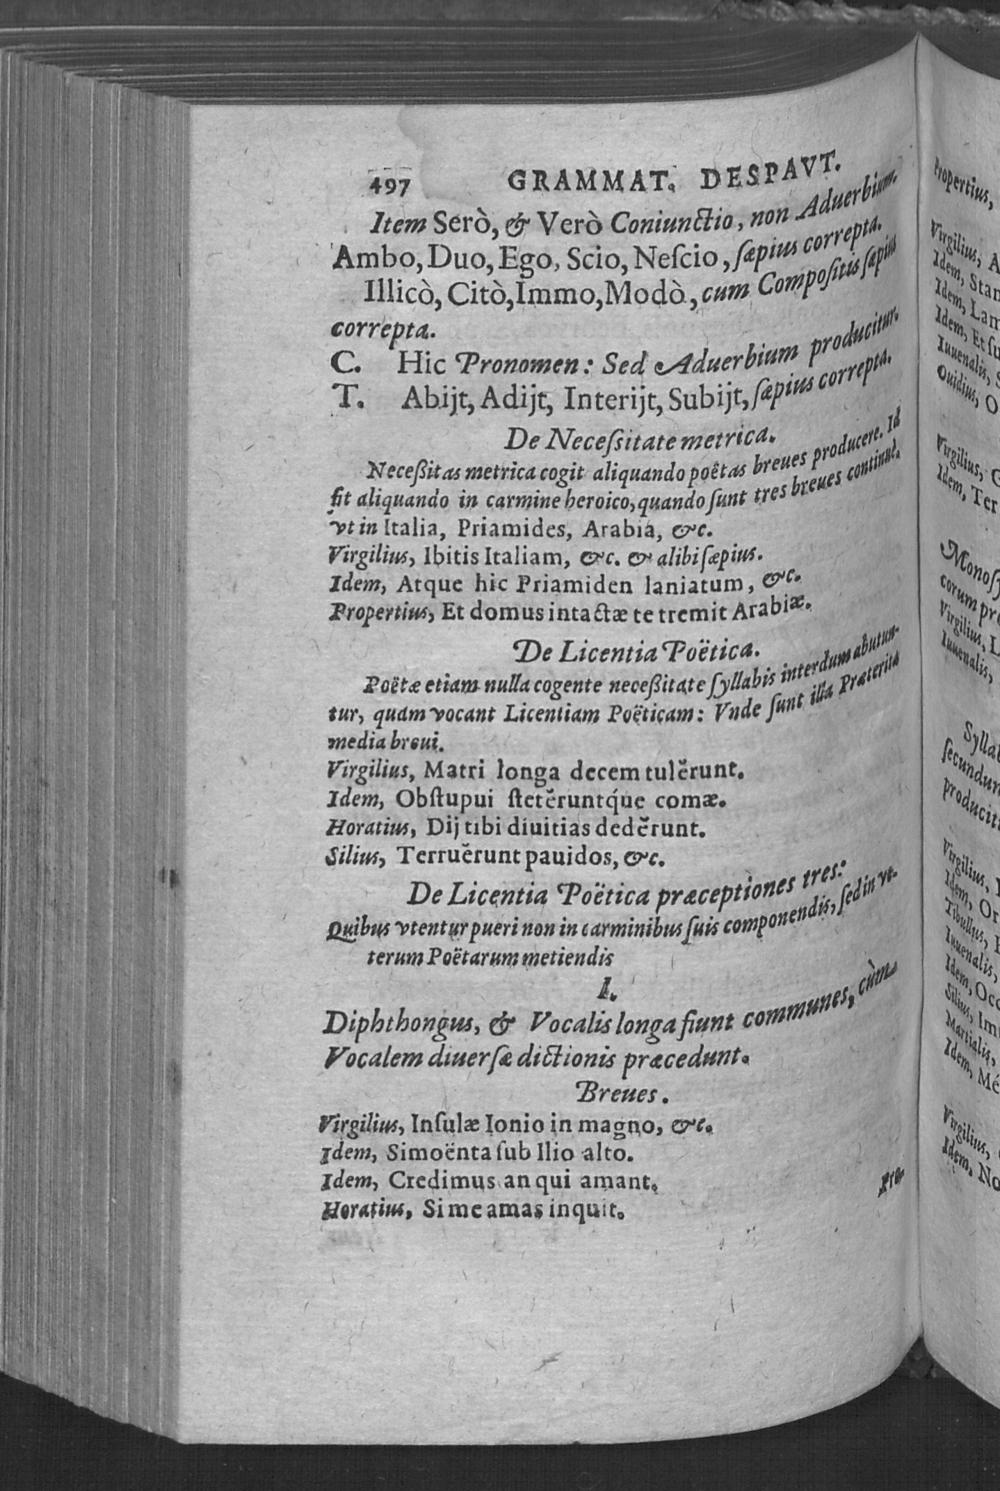 497 GRAMMAT. DESPAVT.
Item Serò, & Verò Coniunctio, non Aduerbium.
Ambo, Duo, Ego, Scio, Neſcio, ſæpius correpta.
Illicò, Citò, Immo, Modò, cum Compoſitis ſæpius
correpta.
C. Hic Pronomen: Sed Aduerbium producitur.
T. Abijt, Adijt, Interijt, Subijt, ſæpius correpta.
De Neceſsitate metrica.
Neceßitas metrica cogit aliquando poëtas breues producere. Id
fit aliquando in carmine heroico, quando ſunt tres breues continuè.
vt in Italia, Priamides, Arabia, &c.
Virgilius, Ibitis Italiam, &c. & alibi ſæpius.
Idem, Atque hic Priamiden laniatum, &c.
Propertius, Et domus intactæ te tremit Arabiæ.
De Licentia Poëtica.
Poëtæ etiam nulla cogente neceßitate ſyllabis interdum abutun-
tur, quam vocant Licentiam Poëticam: Vnde ſunt illa Præterita
media breui.
Virgilius, Matri longa decem tulĕrunt.
Idem, Obſtupui ſtetĕruntq́ue comæ.
Horatius, Dij tibi diuitias dedĕrunt.
Silius, Terruĕrunt pauidos, &c.
De Licentia Poëtica præceptiones tres:
Quibus vtentur pueri non in carminibus ſuis componendis, ſed in ve-
terum Poëtarum metiendis
I.
Diphthongus, & Vocalis longa fiunt communes, cùm
Vocalem diuerſæ dictionis præcedunt.
Breues.
Virgilius, Inſulæ Ionio in magno, &c.
Idem, Simoënta ſub Ilio alto.
Idem, Credimus an qui amant.
Horatius, Si me amas inquit.
Pro-
Propertius,
Virgilius, A
Idem, Stan
Idem, Lam
Idem, Et ſu
Iuuenalis, S
Ouidius, O
Virgilius, G
Idem, Ter
Monoſy
corum pro
Virgilius, L
Iuuenalis,
Syllab
ſecundum
producit
Virgilius, I
Idem, Or
Tibullus, E
Iuuenalis,
Idem, Occ
Silius, Im
Martialis,
Idem, Mé
Virgilius,
Idem, No